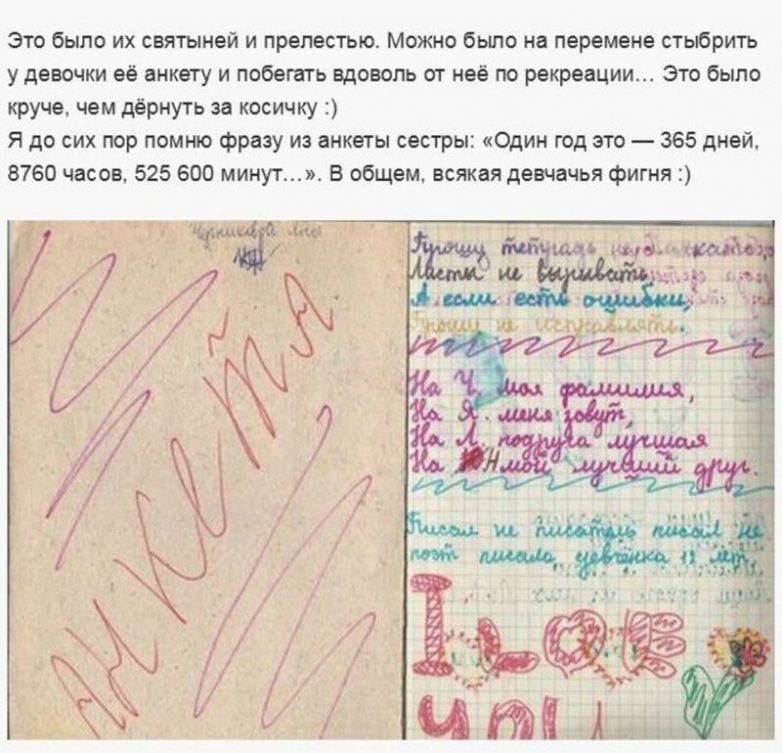 Это было их святыней и прелестью. Можно было на перемене стыбрить
у девочки её анкету и побегать вдоволь от неё по рекреации... Это было
круче, чем дёрнуть за косичку :)
Я до сих пор помню фразу из анкеты сестры: «Один год это — 365 дней,
8760 часов, 525 600 минут...». В общем, всякая девчачья фигня :)
Анкета
Прошу тетрадь не
Листы не вырывать
А если есть ошибки,
Прошу не исправлять.
На Ч. моя фамилия,
На Я. меня зовут,
На Л. подруга лучшая
На Н мой лучший друг.
Писал не писатель писал не
поэт писала девчёнка 12 лет
I LOVE
YOU!